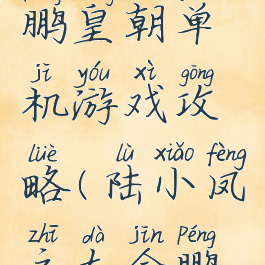 鹏皇朝单
jī yóu xì gōng
机游戏攻
lüè lù xiǎo fèng
略(陆小凤
zhī dà jīn Péng
之大金鹏